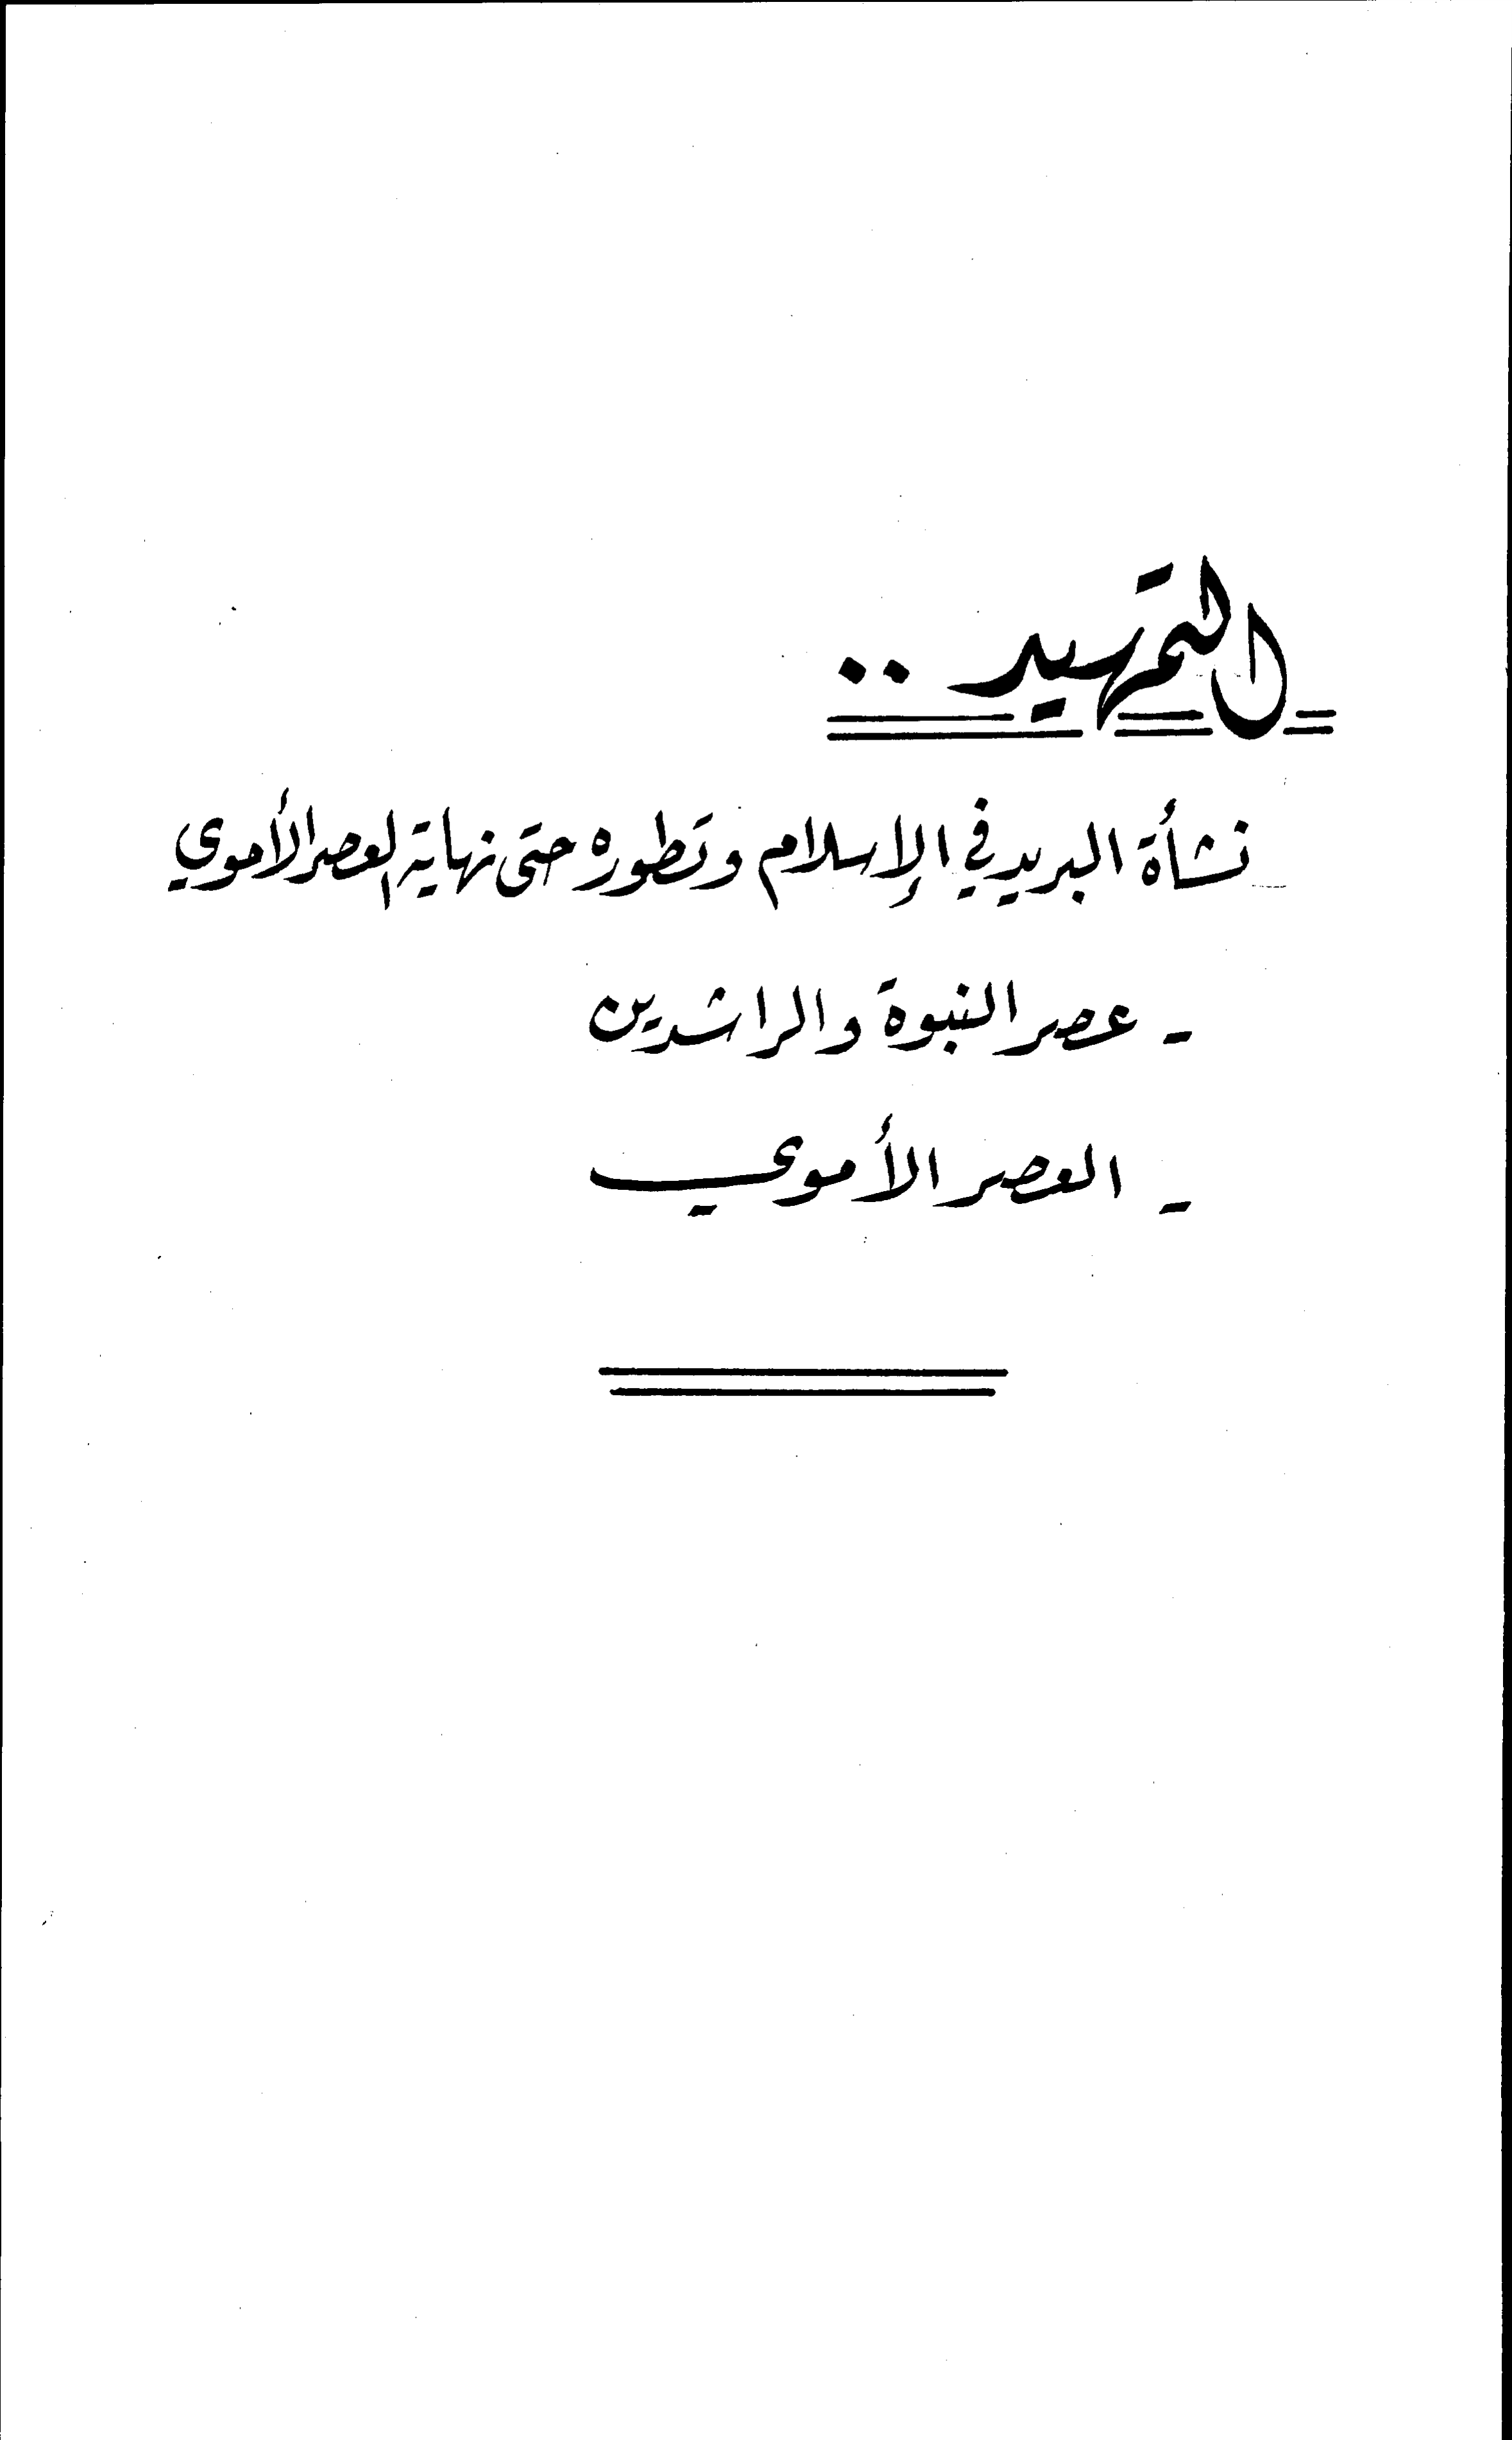 التمهيد ..
نشأة البريد في الإسلام وتطوره حتى نهاية العصر الأموي
- عصر النبوة والراشدين
- العصر الأموي